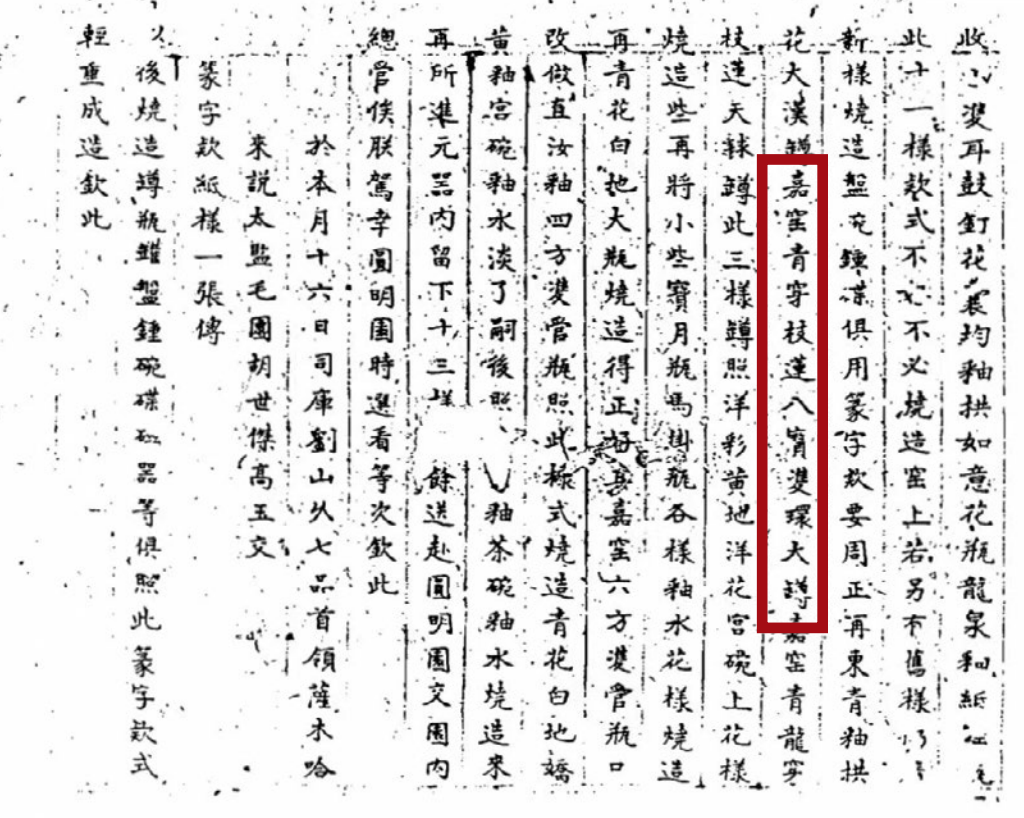 收 雙耳鼓釘花囊均釉拱如意花瓶龍泉和紙
此十一樣款式不 不必燒造窑上若另有舊樣
新樣燒造盤 鍾 俱用篆字款要周正再東青釉拱
花大漢罇嘉窑青穿枝蓮八寶雙環大罇嘉窑青龍穿
枝蓮天球罇此三樣罇照洋彩黄地洋花宫碗上花樣
燒造些再將小些寶月瓶馬掛瓶各樣釉水花樣燒造
再青花白地大瓶燒造得正好 嘉窑六方雙管瓶口
改做直汝釉四方雙管瓶照此樣式燒造青花白地嬌
黄釉宫碗釉水淡了嗣後照 釉茶碗釉水燒造來
再所進元器内留下十三樣 餘送赴圓明園交園内
總管俟朕駕幸圓明園時選看等次欽此
於本月十六日司庫劉山久七品首領薩木哈
來說太監毛團胡世傑高玉交
篆字款紙樣一張傳
以後燒造罇瓶罐盤鍾碗碟 器等俱照此篆字款式
輕重成造欽此